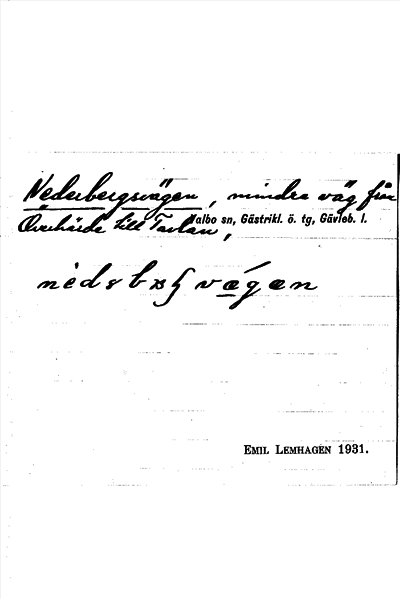 Nederbergsvägen, mindre väg från
Överhärde till Tavlan,
Valbo sn, Gästrikl. ö. tg, Gävleb. l.
EMIL LEMHAGEN 1931.